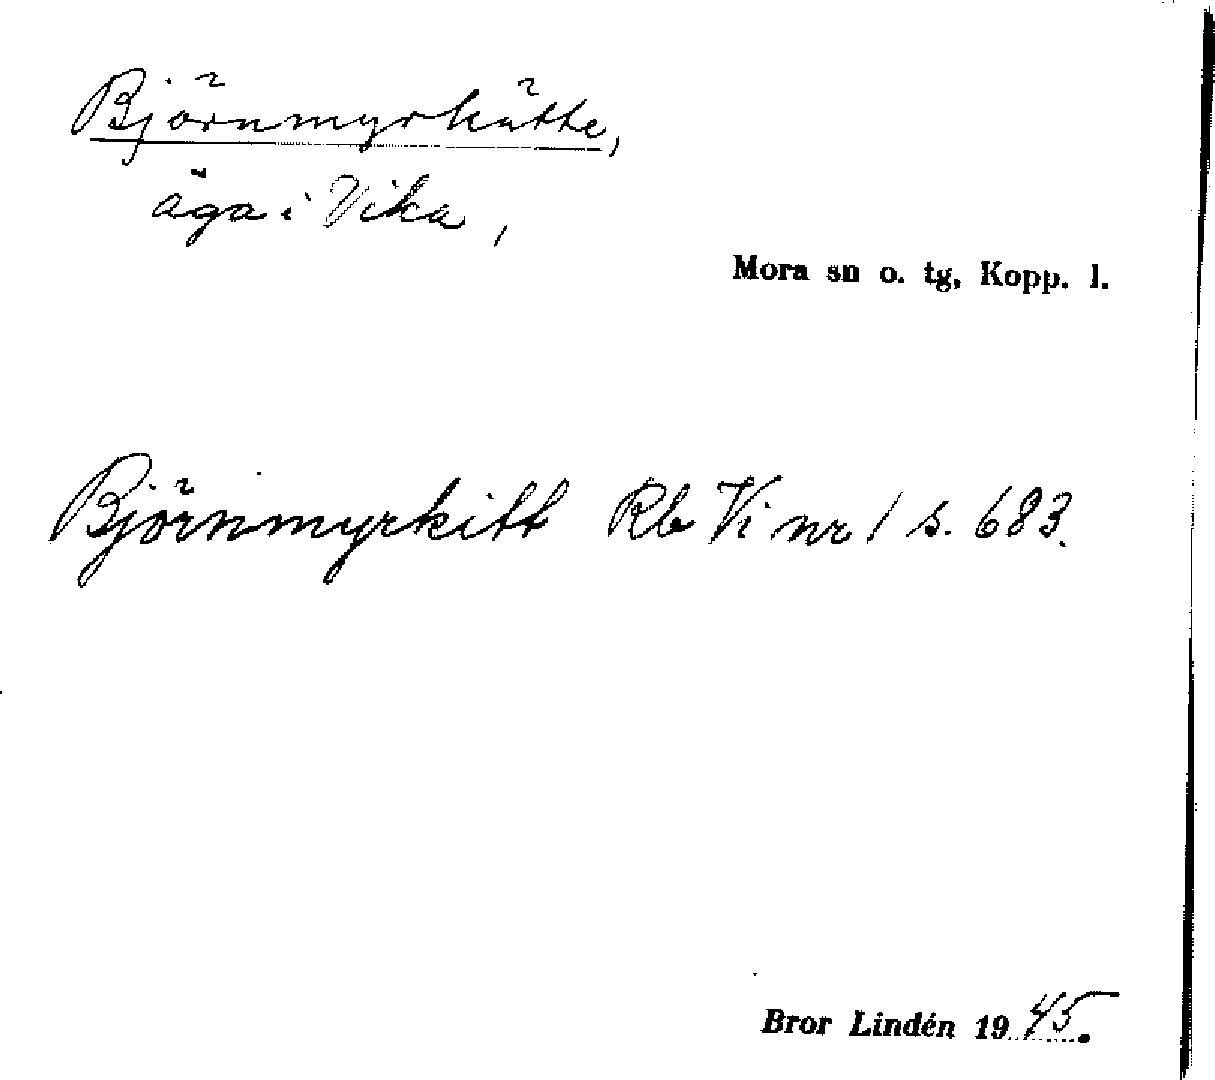 Björnmyrkätte,
äga i Vika,
Mora sn o. tg, Kopp. l.
Björnmyrkitt Rb Vi nr 1 s. 683.
Bror Lindén 1945.